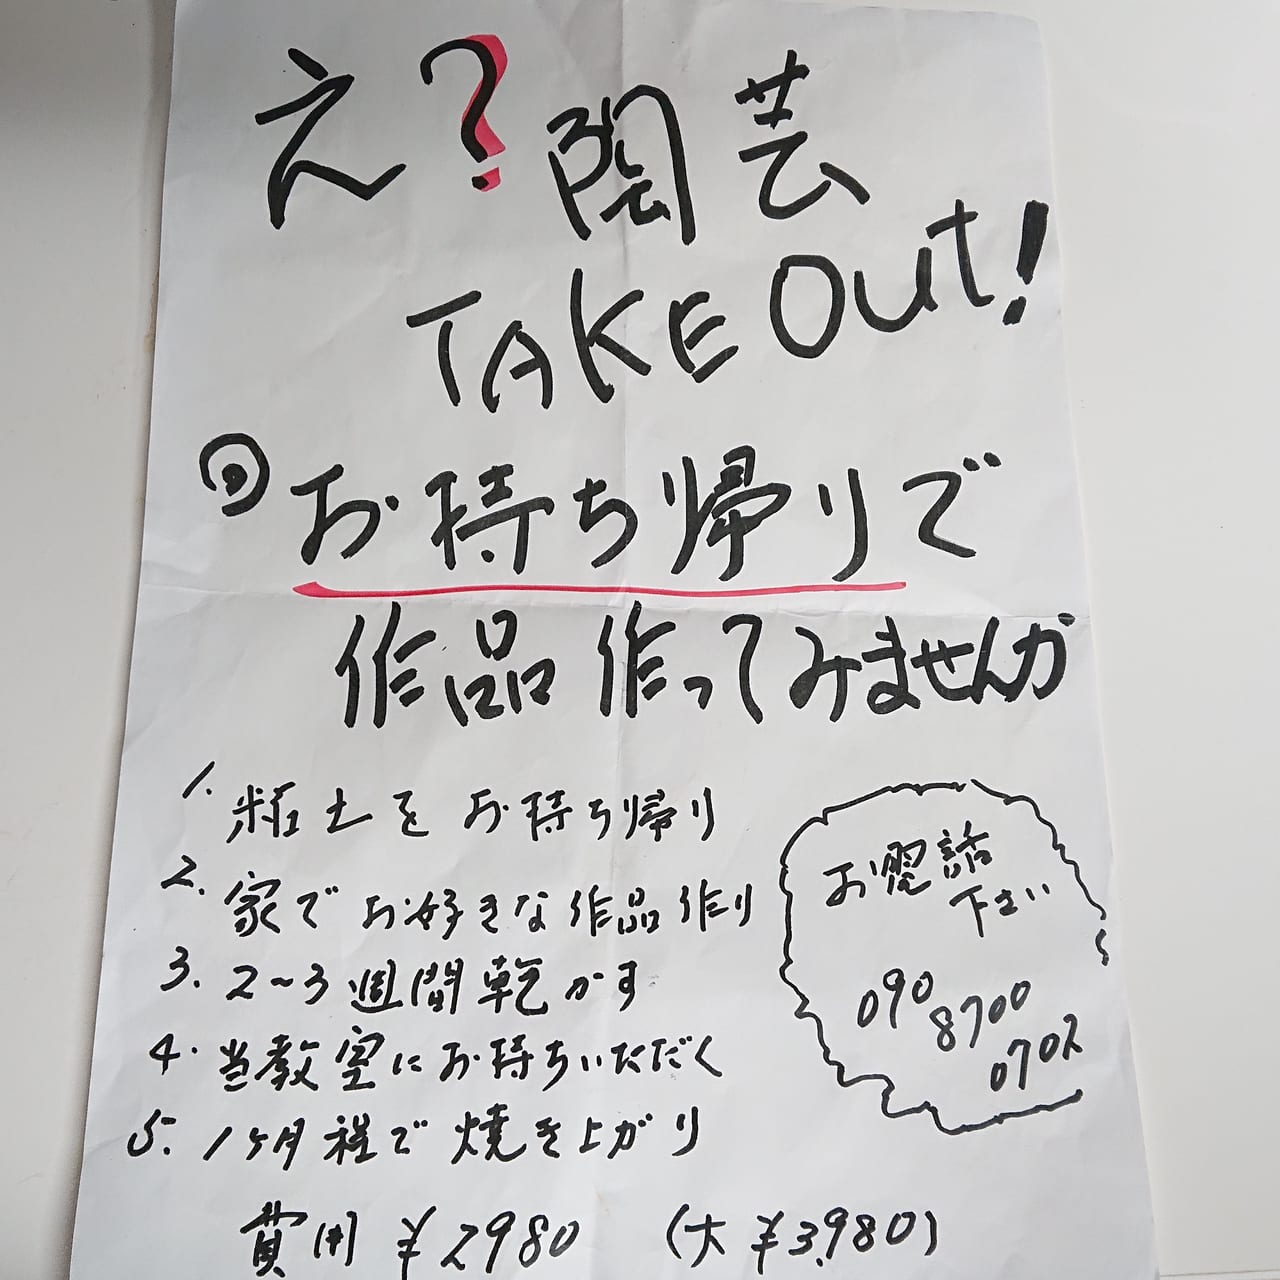 え?陶芸
TAKE Out!
お持ち帰りで
作品作ってみませんか
1. 粘土をお持ち帰り
2. 家でお好きな作品作り
3. 2~3週間乾かす
4. 当教室にお持ちいただく
5. 1ヶ月程で焼き上がり
お電話
下さい
090
8700
0702
費用 ¥2980 (大 ¥3,980)